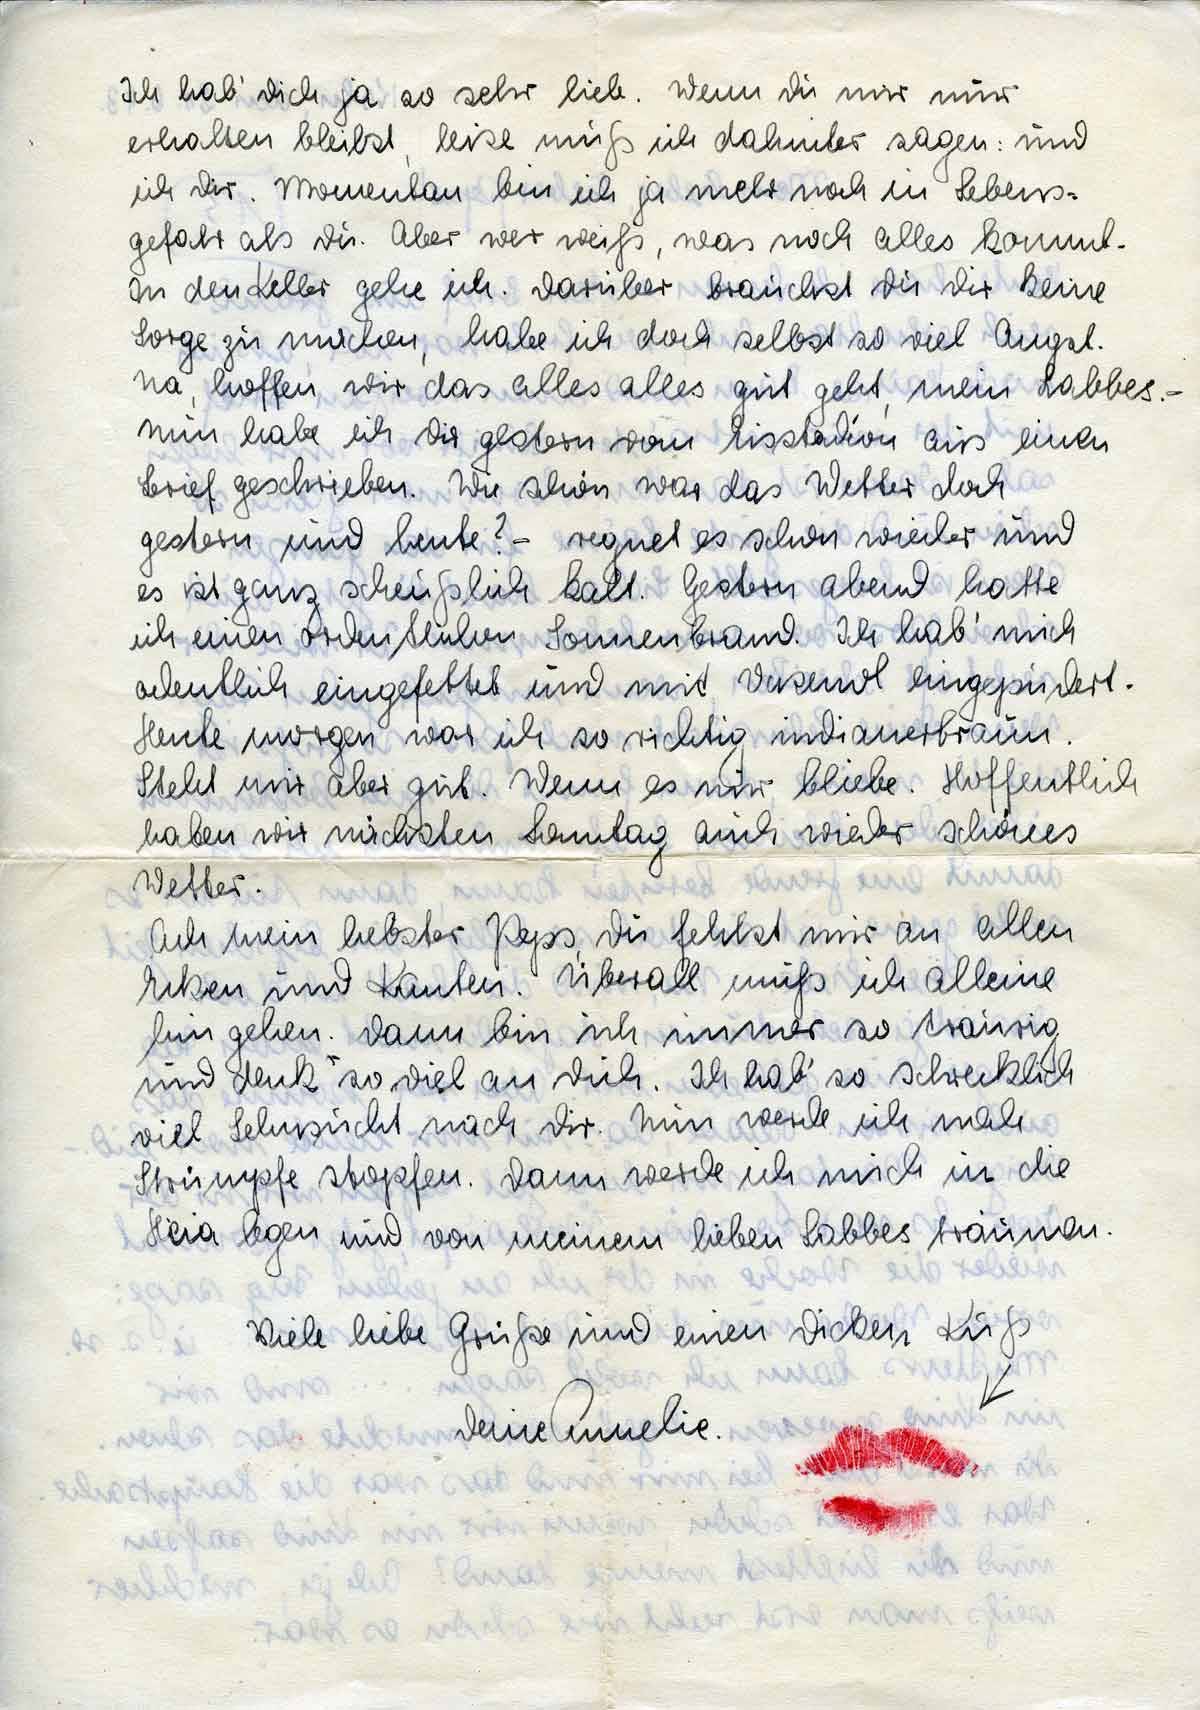 Ich hab' Dich ja so sehr lieb. Wenn Du mir nur
erhalten bleibst, leise muß ich dahinter sagen: und
ich Dir. Momentan bin ich ja mehr noch in Lebens-
gefahr als Du. Aber wer weiß, was noch alles kommt.
In den Keller gehe ich. Darüber brauchst Du Dir keine
Sorge zu machen, habe ich doch selbst so viel Angst.
Na, hoffen wir das alles alles gut geht, mein Labbes.-
Nun habe ich Dir gestern vom Eisstadion aus einen
Brief geschrieben. Wie schön war das Wetter doch
gestern und heute?- regnet es schon wieder und
es ist ganz scheußlich kalt. Gestern abend hatte
ich einen ordentlichen Sonnenbrand. Ich hab' mich
ordentlich eingefettet und mit eingepudert.
Heute morgen war ich so richtig indianerbraun.
Steht mir aber gut. Wenn es nur bliebe. Hoffentlich
haben wir nächsten Sonntag auch wieder schönes
Wetter.
Ach mein liebster Peps, Du fehlst mir an allen
Ecken und Kanten. Überall muß ich alleine
hin gehen. Dann bin ich immer so traurig
und denk' so viel an Dich. Ich hab' so schrecklich
viel Sehnsucht nach Dir. Nun werde ich noch
Strümpfe stopfen. Dann werde ich mich in die
Heia legen und von meinem lieben Labbes träumen.
Viele liebe Grüße und einen dicken Kuß
Deine Annelie.